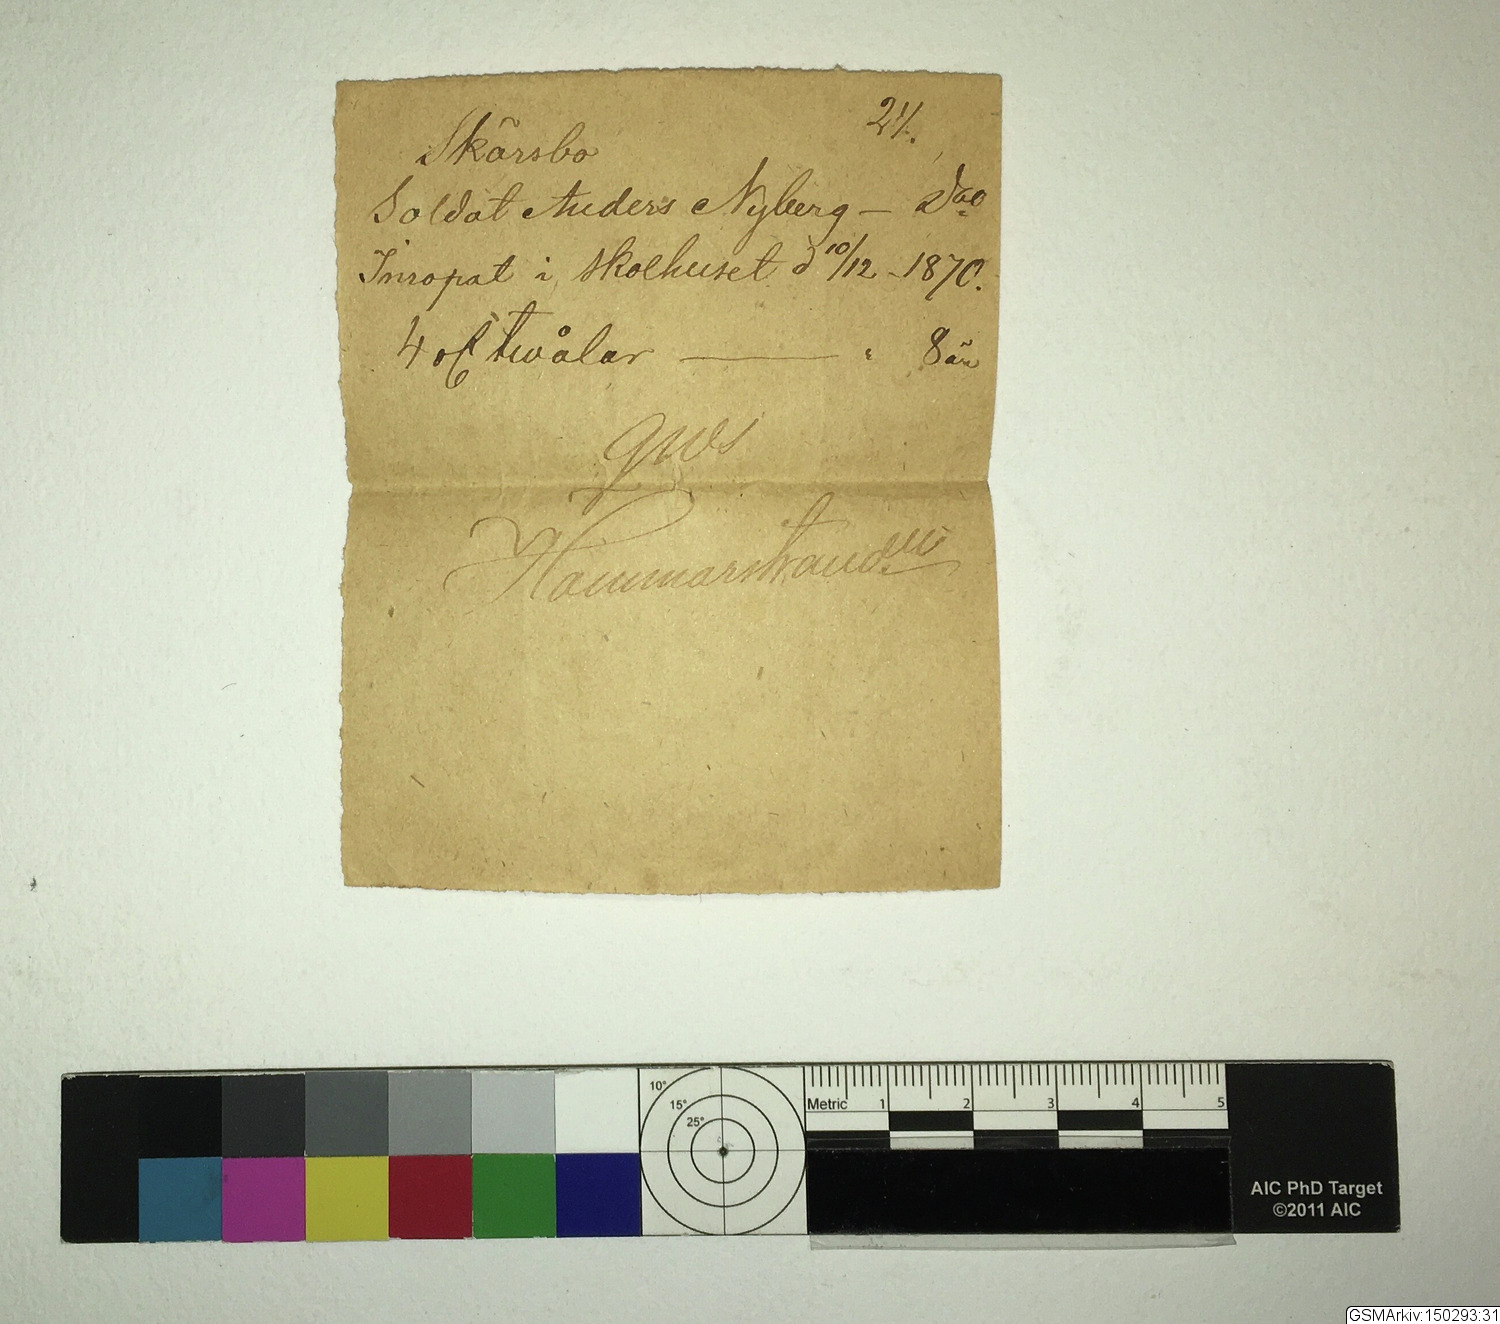 21.
Skärsbo
Soldat Anders Nyberg —
Inropat i skolhuset d 10/12 - 1870.
4 st twålar — " 8 öre
qvts
Hammarstrand
10°
15°
25°
Metric 1 2 3 4 5
AIC PhD Target
©2011 AIC
GSMArkiv:150293:31